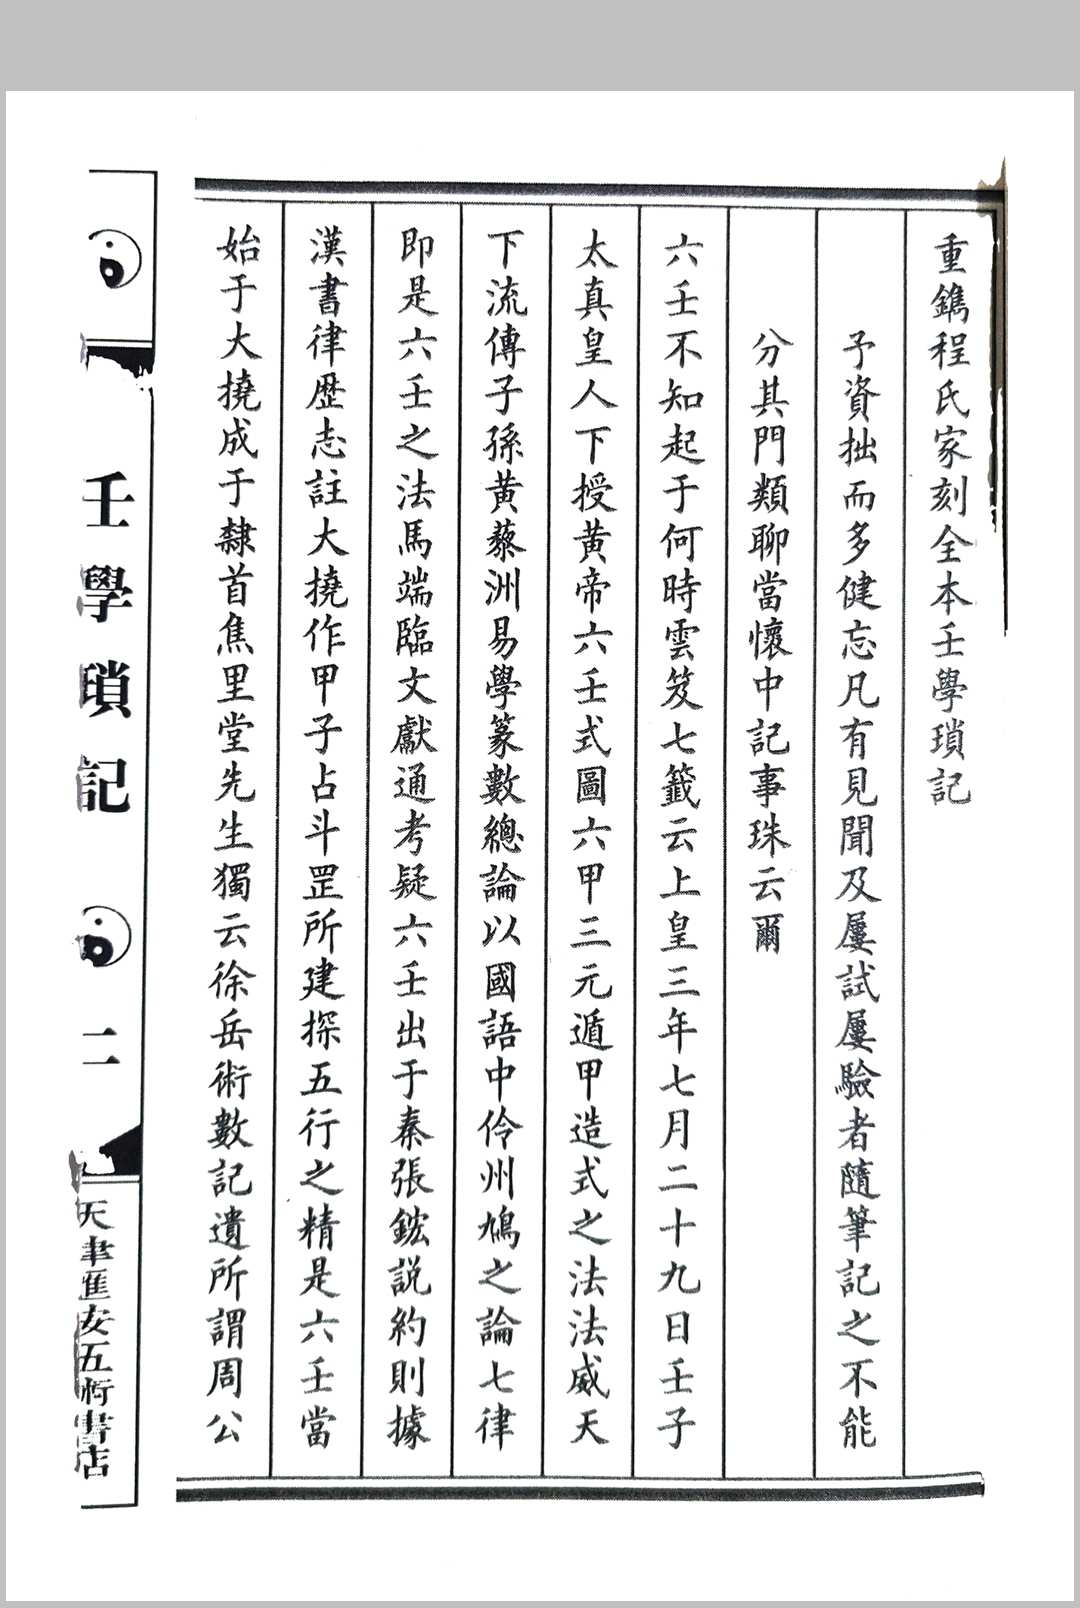 重鐫程氏家刻全本壬學瑣記
予資拙而多健忘凡有見聞及屢試屢驗者隨筆記之不能
分其門類聊當懷中記事珠云爾
六壬不知起于何時雲笈七籤云上皇三年七月二十九日壬子
太真皇人下授黄帝六壬式圖六甲三元遁甲造式之法法威天
下流傳子孫黄藜洲易學篆數總論以國語中伶州鳩之論七律
即是六壬之法馬端臨文獻通考疑六壬出于秦張鋐説約則據
漢書律歷志註大撓作甲子占斗罡所建探五行之精是六壬當
始于大撓成于隸首焦里堂先生獨云徐岳術數記遺所謂周公
壬學瑣記
二
天津匯安五術書店